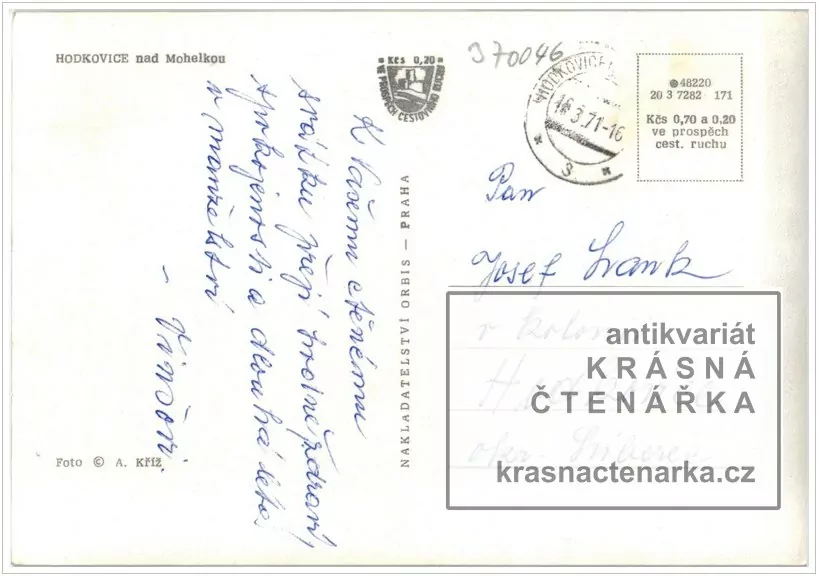 HODKOVICE nad Mohelkou
Kčs 0,20
VE PROSPĚCH CESTOVNÍHO RUCHU
370046
HODKOVICE
16.3.71-16
3
48220
20 3 7282 171
Kčs 0,70 a 0,20
ve prospěch
cest. ruchu
K Vašemu ctěnému
svátku přeji hodně zdraví,
spokojenosti a dlouhá léta
v manželství
NAKLADATELSTVÍ ORBIS — PRAHA
Pan
Josef
antikvariát
KRÁSNÁ
ČTENÁŘKA
krasnactenarka.cz
okr. Liberec
Foto © A. Kříž